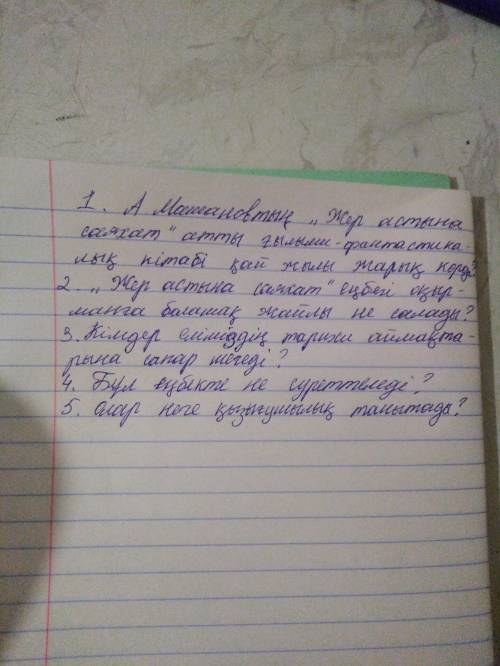 1. А Машановтың „Жер астына
саяхат" атты ғылыми-фантастика-
лық кітабі қай жылы жарық көрді?
2. „Жер астына саяхат" еңбегі оқыр-
манға болашақ жайлы не салады?
3. Кімдер еліміздің тарихи аймақта-
рына сапар шегеді?
4. Бұл еңбекте не суреттеледі?
5. Олар неге қызығушылық танытады?